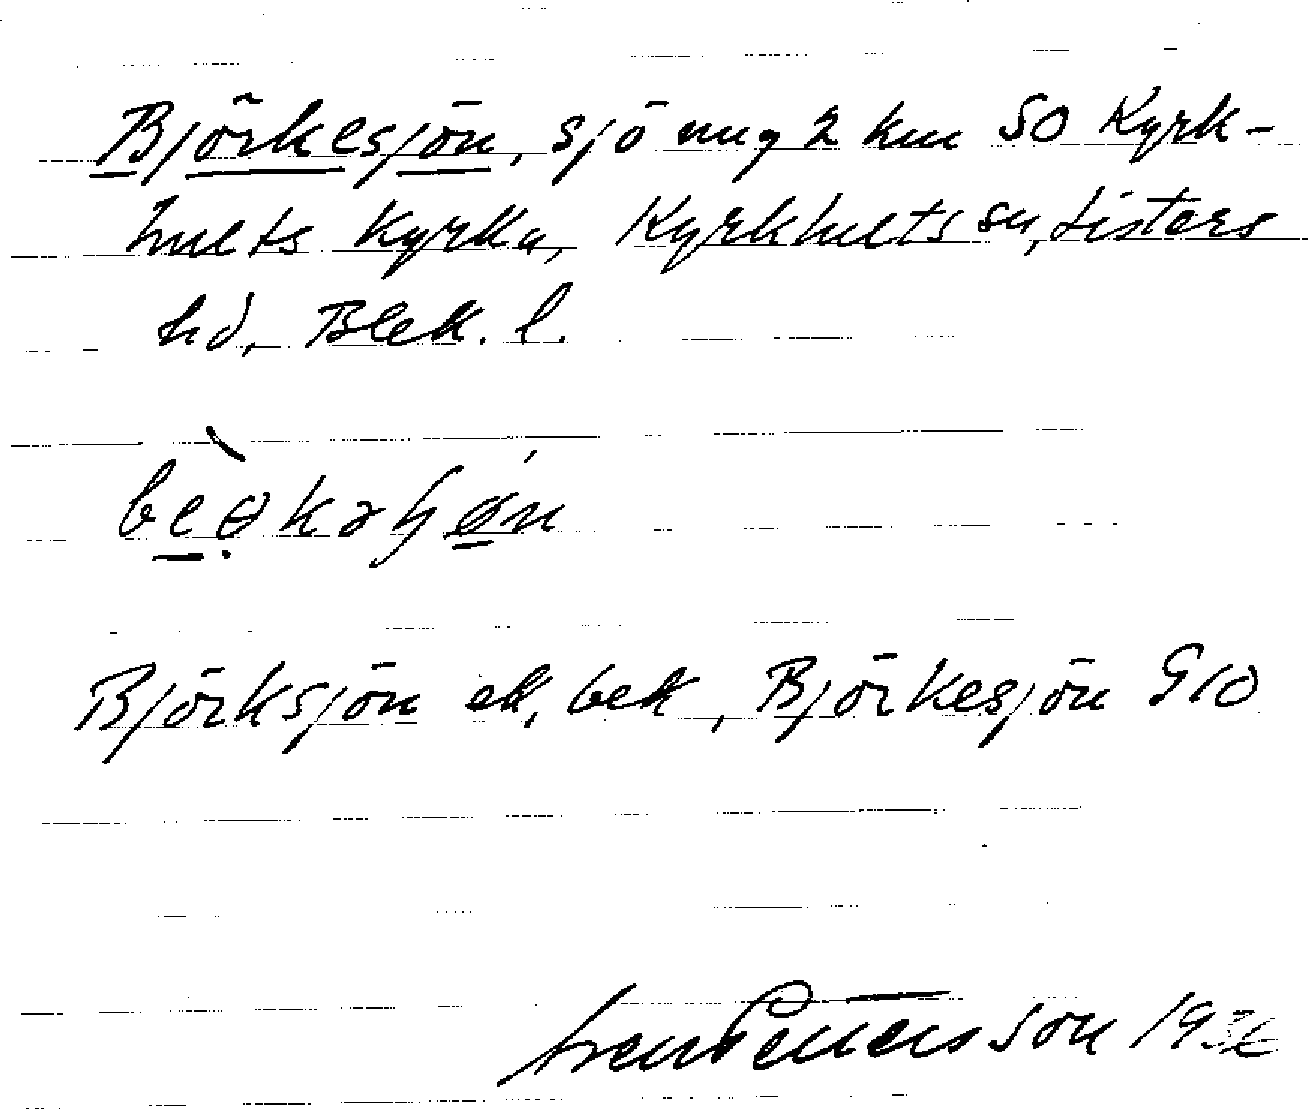 Björkesjön, sjö ung 2 km SO Kyrk-
hults kyrka, Kyrkhults sn, Listers
hd, Blek. l.
Björksjön ek, bek, Björkesjön G10
Pettersson 193